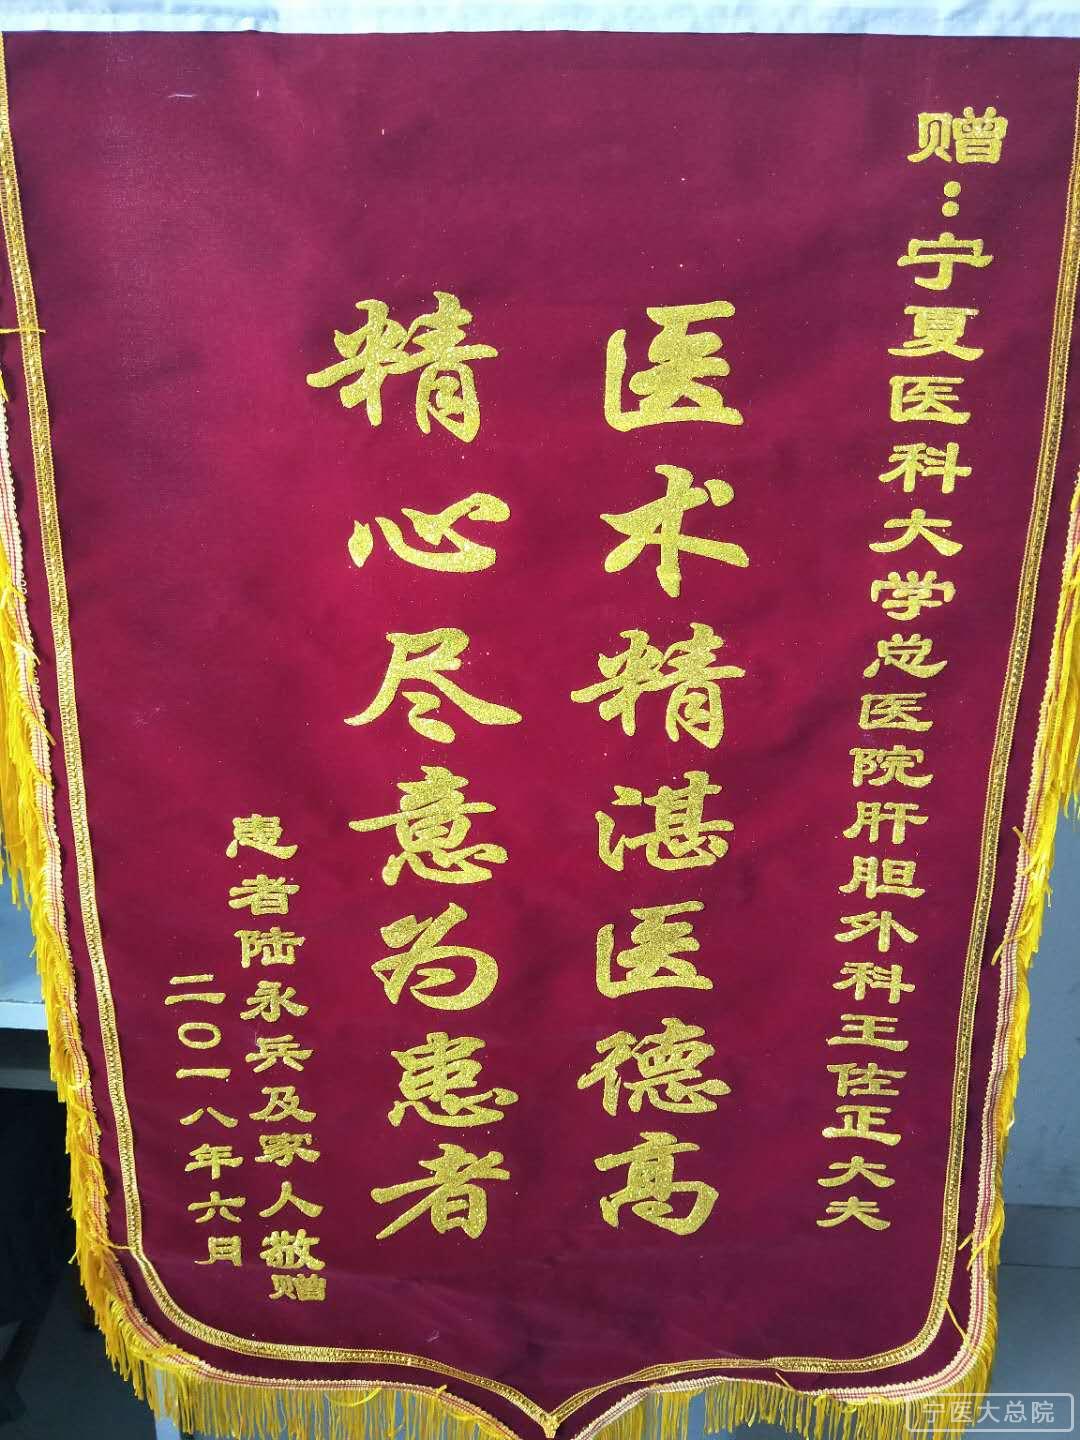 赠：宁夏医科大学总医院肝胆外科王佐正大夫
医术精湛医德高
精心尽意为患者
患者陆永兵及家人敬赠
二〇一八年六月
宁医大总院